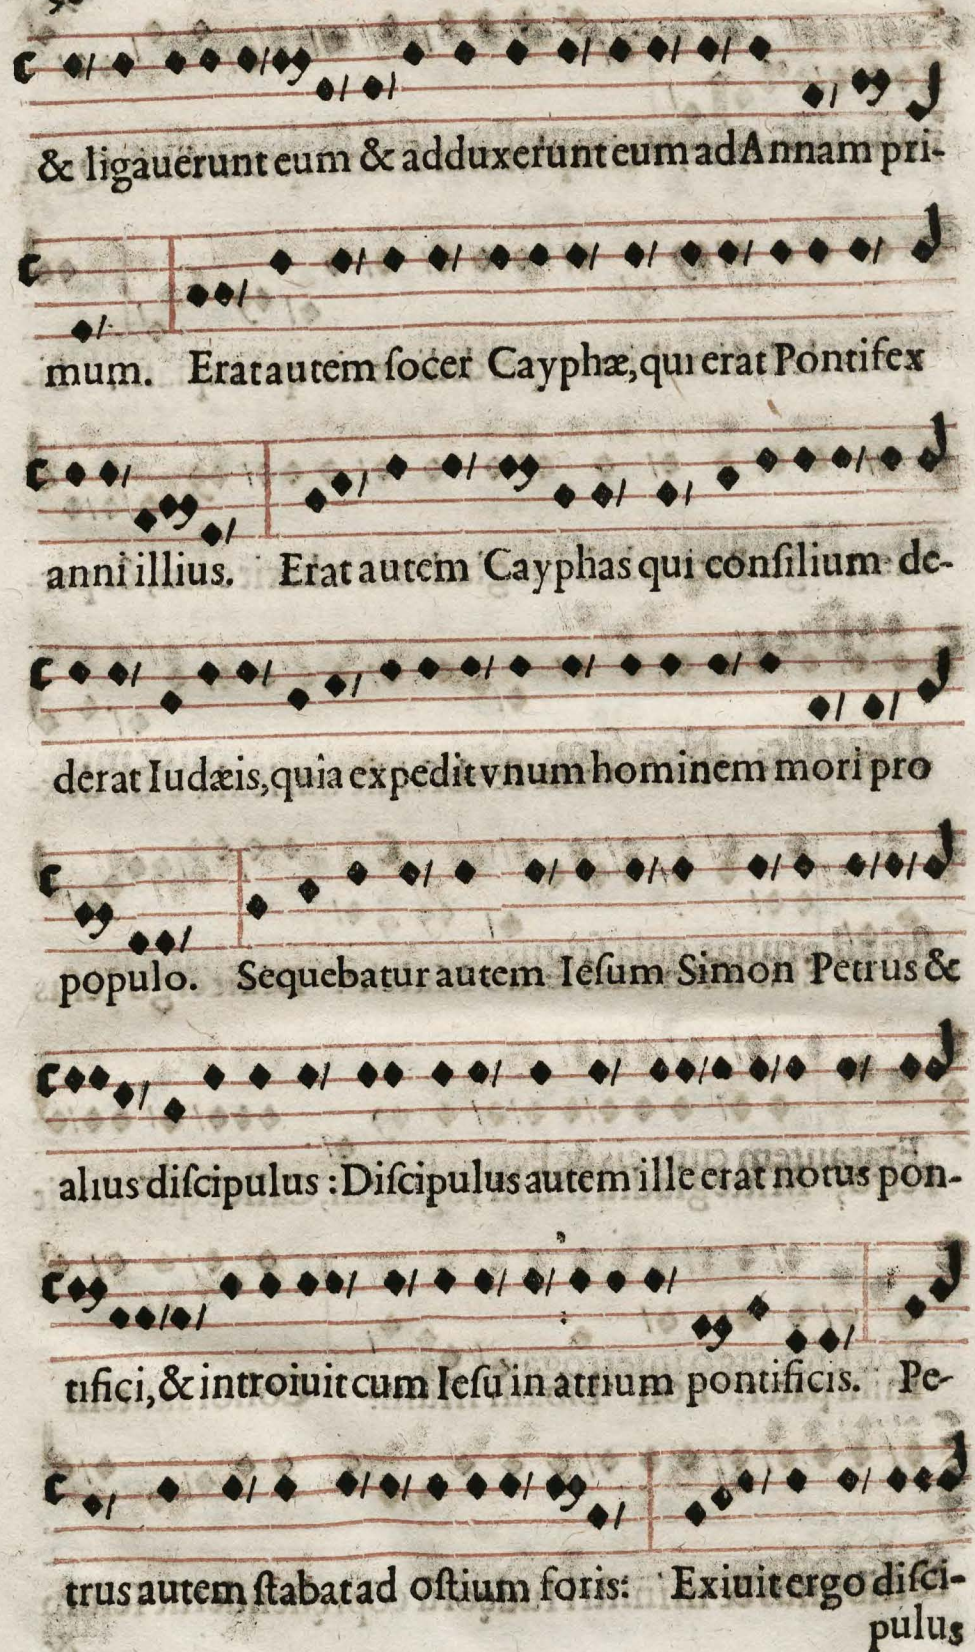 & ligauerunt eum & adduxerunt eum ad Annam pri-
mum. Erat autem ſocer Cayphæ, qui erat Pontifex
anni illius. Erat autem Cayphas qui conſilium de-
derat Iudæis, quia expedit vnum hominem mori pro
populo. Sequebatur autem Ieſum Simon Petrus &
alius diſcipulus : Diſcipulus autem ille erat notus pon-
tifici, & introiuit cum Ieſu in atrium pontificis. Pe-
trus autem ſtabat ad oſtium foris: Exiuit ergo diſci-
pulus